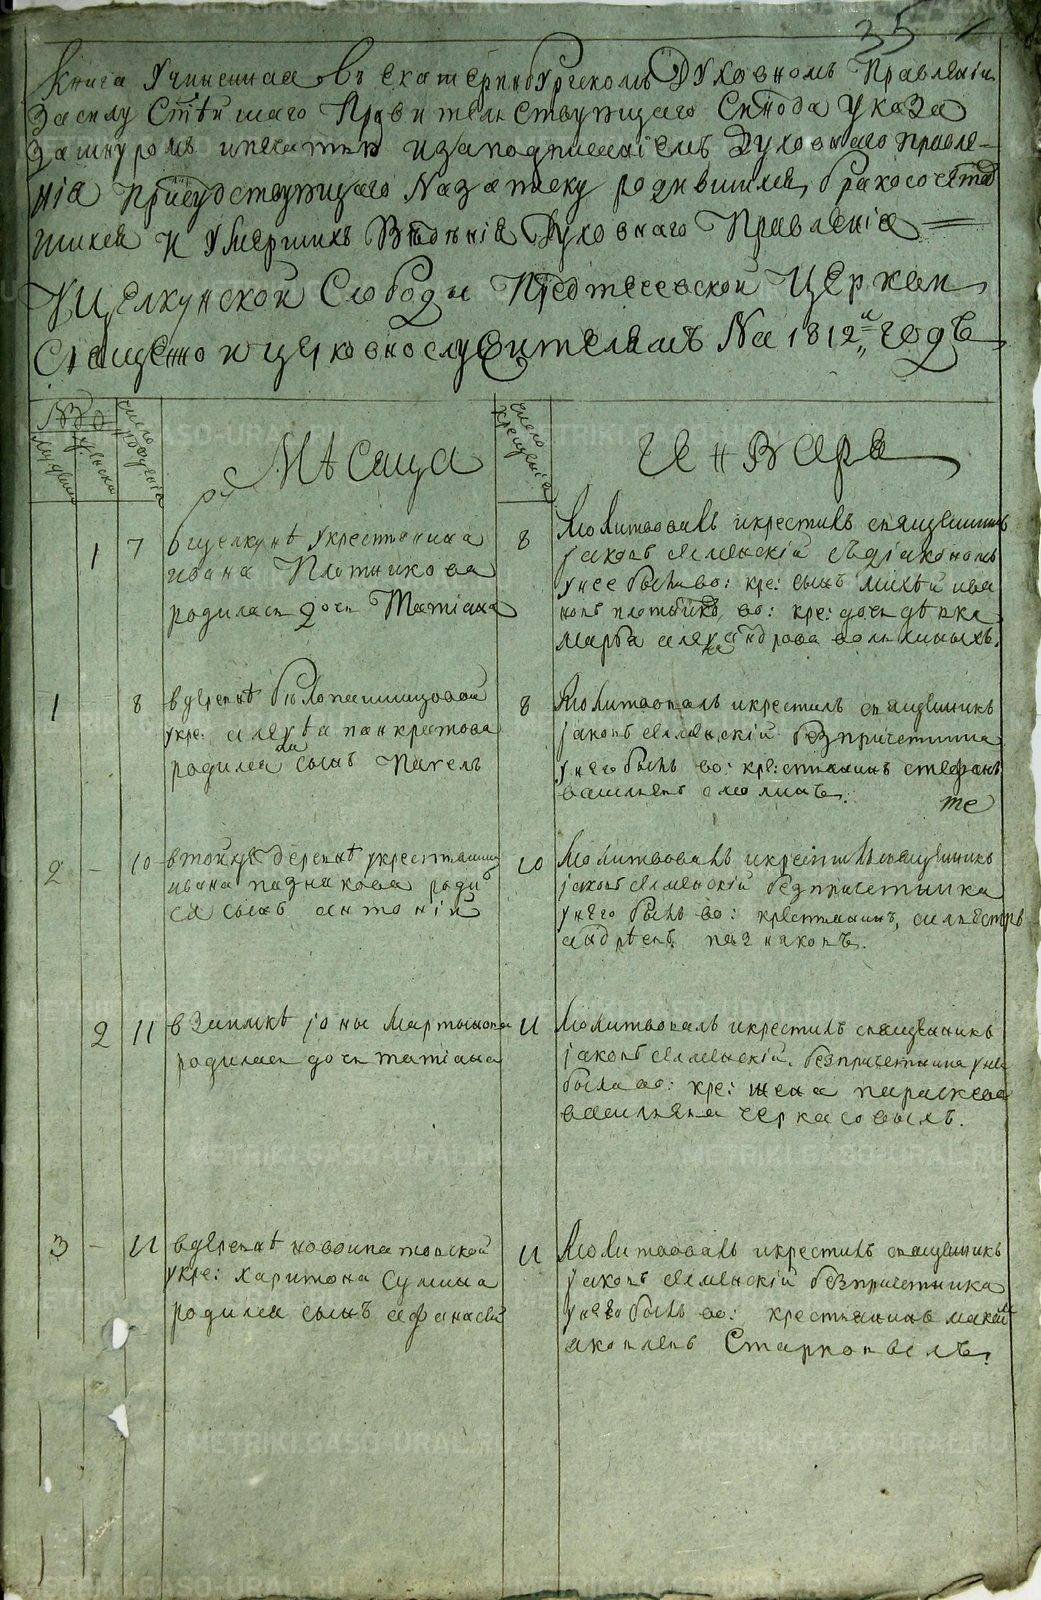 35
Книга Учиненная въ екатеринбургскомъ Духовномъ Правленіи
Засилу Стѣйшаго Правительствующаго Синода Указа
Зашнуромъ ипечатью изаподписаніемъ Духовнаго правле-
нія Присудствующаго Назаписку родившихся, бракосочета
шихся И Умершихъ Вѣденія Духовнаго Правленія
Щелкунской Слободы Предтечевской Церкви
Священно ицерковнослужителямъ На 1812й годъ
№
число рожденія
Мѣсица
число крещенія
Генваря
1 7
вщелкунѣ Укрестьянина
ивана Плотникова
родилась дочь Татіана
8
Молитвовалъ икрестилъ священникъ
іаковъ съдіакономъ
унее былъ во: кре: сынъ ива
новъ плотниковъ во: кре: дочь дѣвка
марфа александрова
1 8
вдеревнѣ
укре: алексѣа панкратова
родился сынъ Павелъ
8
Молитвовалъ икрестилъ священникъ
іаковъ безпричетника
унего былъ во: крестьянинъ стефанъ
васильевъ
те
2 - 10
втойже деревнѣ укрестьянина
ивана пазникова роди
ся сынъ антоній
10
Молитвовалъ икрестилъ священникъ
іаковъ безпричетника
унего былъ во: крестьянинъ, сильвестръ
андреевъ пазниковъ.
2 11
в Заимкѣ іоны Мартынова
родилась дочь татіана
11
Молитвовалъ икрестилъ священникъ
іаковъ безпричетника унее
была во: кре: жена параскева
васильева черкасовыхъ.
3 - 11
вдеревнѣ новоипатовской
укре: Харитона Сумина
родился сынъ афанасей
11
Молитвовалъ икрестилъ священникъ
іаковъ безпричетника
унего былъ во: крестьянинъ
яковлевъ
METRIKI.GASO-URAL.RU